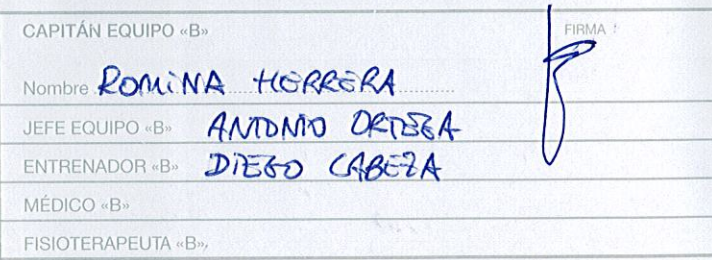 CAPITÁN EQUIPO «B» FIRMA
Nombre ROMINA HERRERA
JEFE EQUIPO «B» ANTONIO ORTEGA
ENTRENADOR «B» DIEGO CABEZA
MÉDICO «B»
FISIOTERAPEUTA «B»